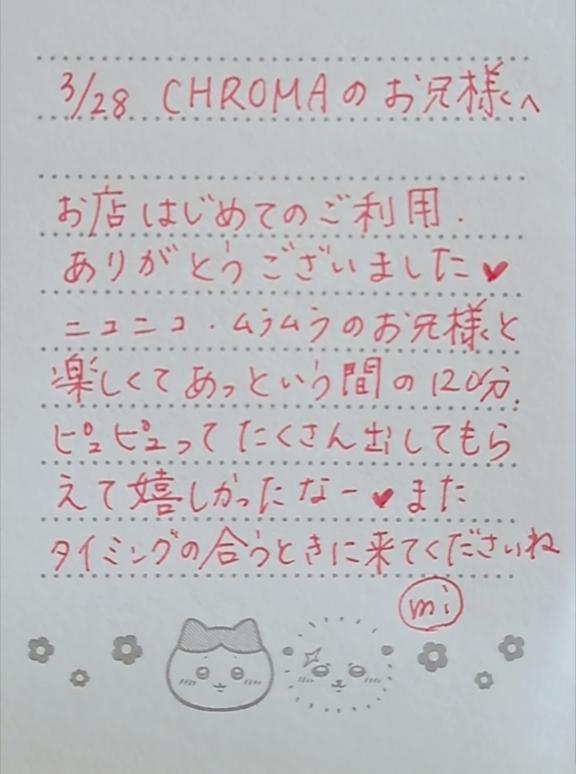 3/28 CHROMAのお兄様へ
お店はじめてのご利用.
ありがとうございました♥
ニコニコ・ムラムラのお兄様と
楽しくてあっという間の120分.
ピュピュってたくさん出してもら
えて嬉しかったなー♥また
タイミングの合うときに来てくださいね
mi